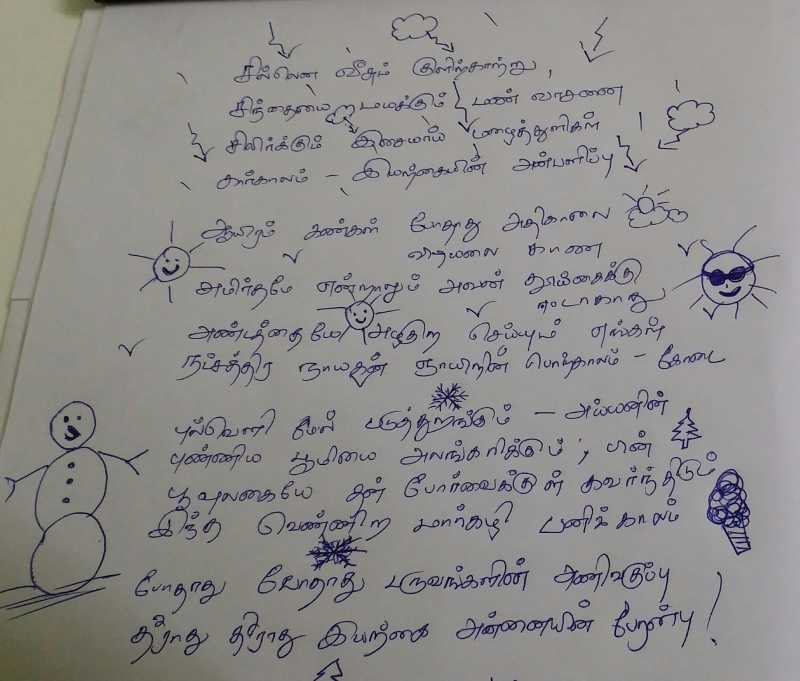 சில்லென வீசும் குளிர்காற்று,
சிந்தையை மயக்கும் மண் வாசனை
சிலிர்க்கும் இசையாய் மழைத்துளிகள்
கார்காலம் - இயற்கையின் அன்பளிப்பு
ஆயிரம் கண்கள் போதாது அதிகாலை
காண
அமிர்தமே என்றாலும் அவன் தூய்மைக்கு
ஈடாகாது
அண்டத்தையே அழகுற செய்யும் எங்கள்
நட்சத்திர நாயகன் ஞாயிறின் பொற்காலம் - கோடை
புல்வெளி மேல் படுத்துறங்கும் - அய்யனின்
புண்ணிய பூமியை அலங்கரிக்கும்; பின்
பூவுலகையே தன் போர்வைக்குள் கவர்ந்திடும்
இந்த வெண்ணிற மார்கழி பனிக் காலம்
போதாது போதாது பருவங்களின் அணிவகுப்பு
தீராது தீராது இயற்கை அன்னையின் பேரன்பு!